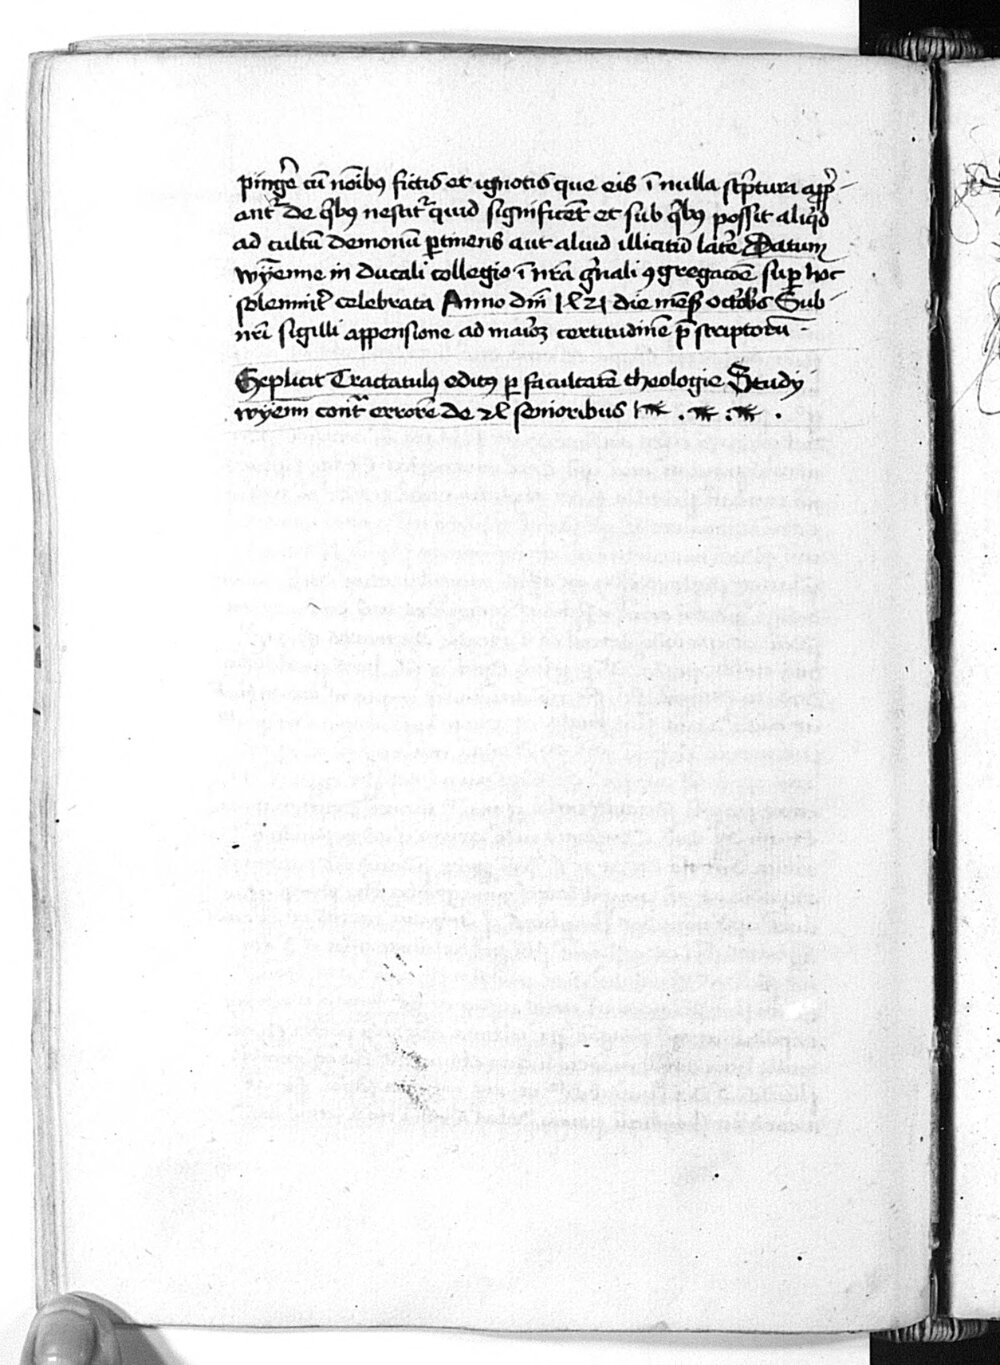 pingē cū nōibꝰ fictis et ignotis que eis ī nulla scͥptura app̄-
ant᷑ de qͥbꝰ nescit᷑ quid significēt et sub qͥbꝰ possit aliqͥd
ad cultū demonū ꝑtinens aut aliud illicitū latē Datum
wyēnne in ducali collegio ī nr̄a gn̄ali ꝯgregacōe suꝑ hoc
solemnil᷑ celebrata Anno dm̄ die men̄s octobͥs Sub
nr̄i sigilli appensione ad maioꝝ certitudinē p̄scriptorū
Explicit Tractatulꝰ editꝰ ꝑ facultatē theologie Study
wyenn cont᷑ errorē de senioribus